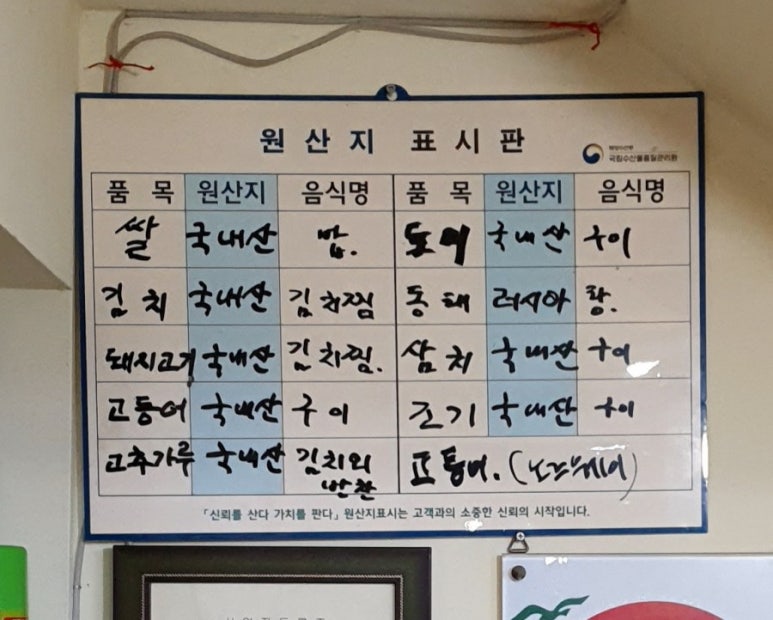 원산지 표시판
해양수산부
국립수산물품질관리원
품목 원산지 음식명 품목 원산지 음식명
쌀 국내산 밥. 도미 국내산 구이
김치 국내산 김치찜 동태 러시아 탕.
돼지고기 국내산 김치찜. 삼치 국내산 구이
고등어 국내산 구이 조기 국내산 구이
고추가루 국내산 김치외 고등어. (노르웨이)
반찬
「신뢰를 산다 가치를 판다」 원산지표시는 고객과의 소중한 신뢰의 시작입니다.